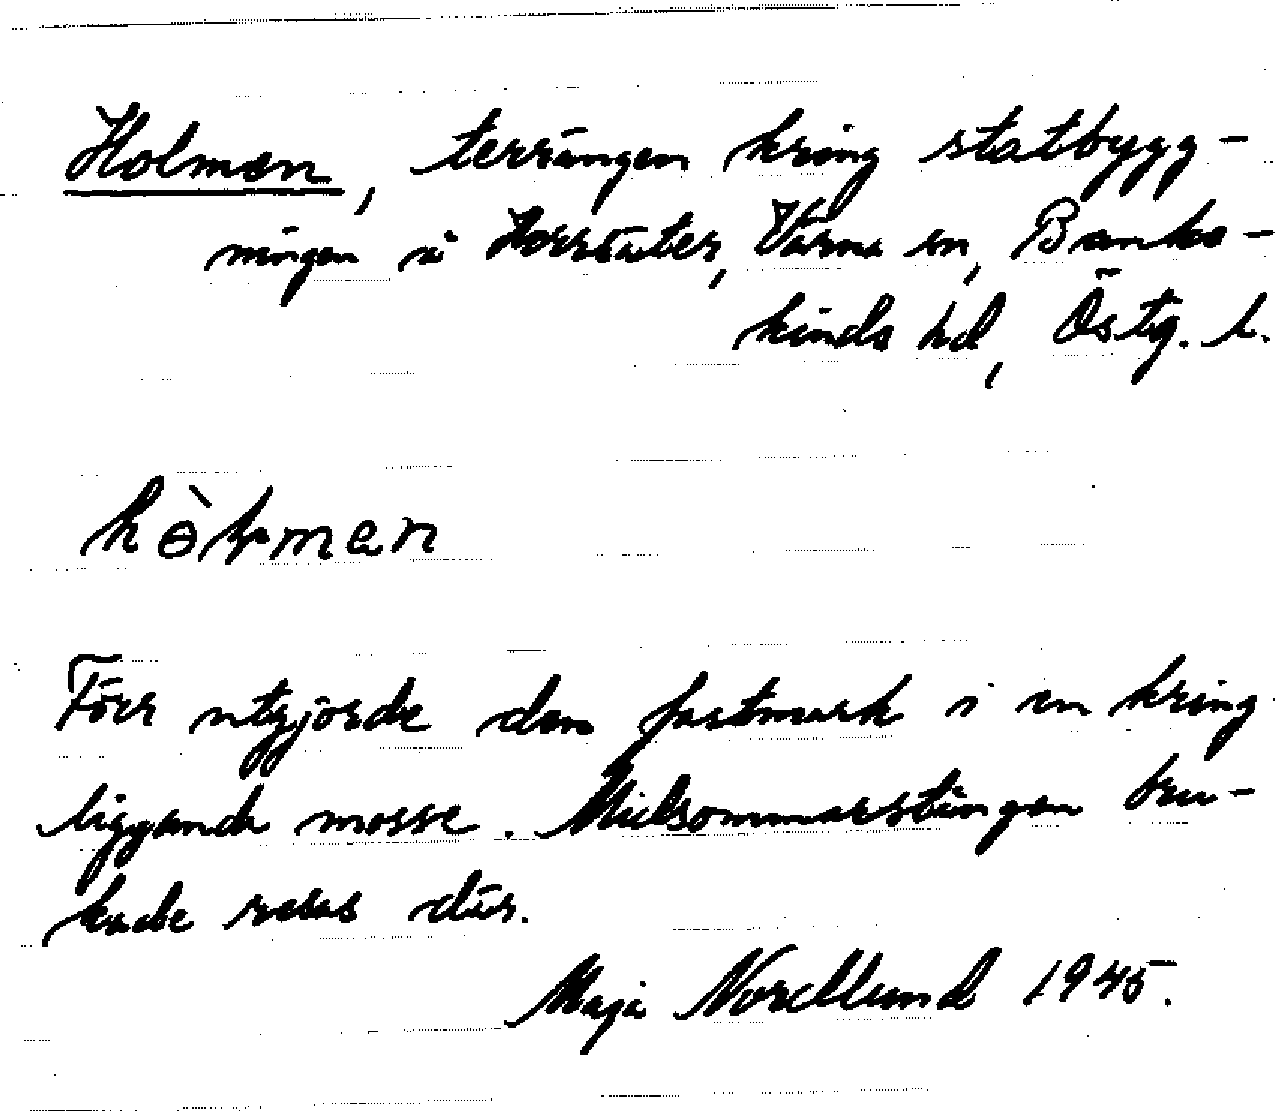 Holmen, terrängen kring statbygg-
ningen å Horsäter, Värna sn, Banke-
kinds hd, Östg. l.
hòɫmen
Förr utgjorde den fastmark i en kring
liggande mosse. Midsommarstången bru-
kade resas där.
Maja Nordlund 1945.